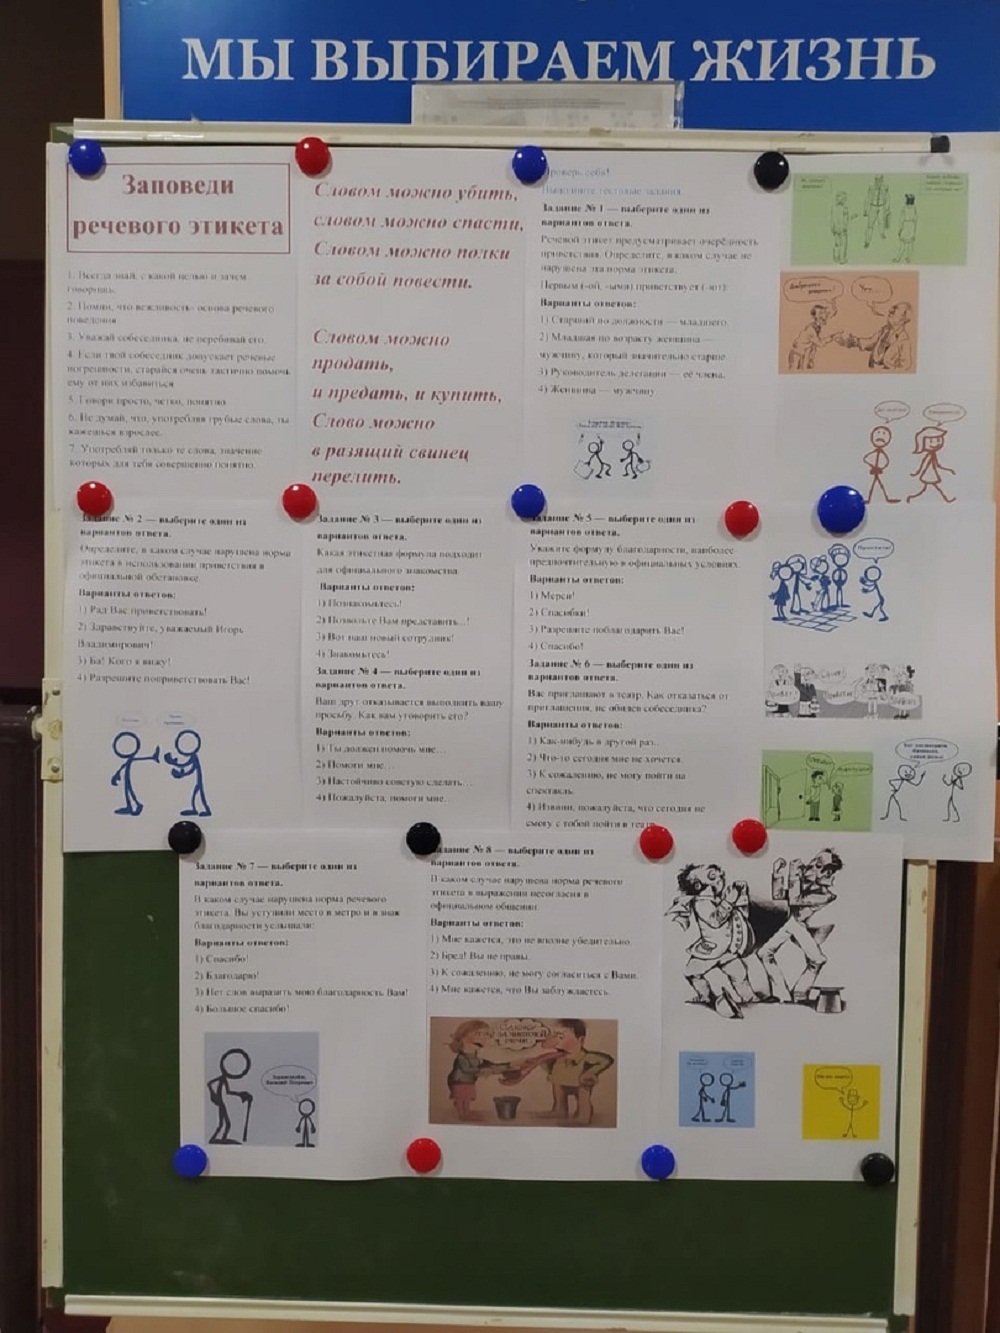 МЫ ВЫБИРАЕМ ЖИЗНЬ
Заповеди
речевого этикета
1. Всегда знай, с какой целью и зачем
говоришь.
2. Помни, что вежливость- основа речевого
поведения
3. Уважай собеседника, не перебивай его.
4. Если твой собеседник допускает речевые
погрешности, старайся очень тактично помочь
ему от них избавиться
5. Говори просто, четко, понятно.
6. Не думай, что, употребляя грубые слова, ты
кажешься взрослее.
7. Употребляй только те слова, значение
которых для тебя совершенно понятно.
Словом можно убить,
словом можно спасти,
Словом можно полки
за собой повести.
Словом можно
продать,
и предать, и купить,
Слово можно
в разящий свинец
перелить.
Проверь себя!
Выполните тестовые задания.
Задание № 1 — выберите один из
вариантов ответа.
Речевой этикет предусматривает очерёдность
приветствия. Определите, в каком случае не
нарушена эта норма этикета.
Первым (-ой, -ыми) приветствует (-ют):
Варианты ответов:
1) Старший по должности — младшего.
2) Младшая по возрасту женщина —
мужчину, который значительно старше.
3) Руководитель делегации — её члена.
4) Женщина — мужчину.
Задание № 2 — выберите один из
вариантов ответа.
Определите, в каком случае нарушена норма
этикета в использовании приветствия в
официальной обстановке.
Варианты ответов:
1) Рад Вас приветствовать!
2) Здравствуйте, уважаемый Игорь
Владимирович!
3) Ба! Кого я вижу!
4) Разрешите поприветствовать Вас!
Задание № 3 — выберите один из
вариантов ответа.
Какая этикетная формула подходит
для официального знакомства:
Варианты ответов:
1) Познакомьтесь!
2) Позвольте Вам представить...!
3) Вот наш новый сотрудник!
4) Знакомьтесь!
Задание № 4 — выберите один из
вариантов ответа.
Ваш друг отказывается выполнить вашу
просьбу. Как вам уговорить его?
Варианты ответов:
1) Ты должен помочь мне…
2) Помоги мне…
3) Настойчиво советую сделать…
4) Пожалуйста, помоги мне…
Задание № 5 — выберите один из
вариантов ответа.
Укажите формулу благодарности, наиболее
предпочтительную в официальных условиях.
Варианты ответов:
1) Мерси!
2) Спасибки!
3) Разрешите поблагодарить Вас!
4) Спасибо!
Задание № 6 — выберите один из
вариантов ответа.
Вас приглашают в театр. Как отказаться от
приглашения, не обидев собеседника?
Варианты ответов:
1) Как-нибудь в другой раз...
2) Что-то сегодня мне не хочется.
3) К сожалению, не могу пойти на
спектакль.
4) Извини, пожалуйста, что сегодня не
смогу с тобой пойти в театр
Задание № 7 — выберите один из
вариантов ответа.
В каком случае нарушена норма речевого
этикета. Вы уступили место в метро и в знак
благодарности услышали:
Варианты ответов:
1) Спасибо!
2) Благодарю!
3) Нет слов выразить мою благодарность Вам!
4) Большое спасибо!
Задание № 8 — выберите один из
вариантов ответа.
В каком случае нарушена норма речевого
этикета в выражении несогласия в
официальном общении
Варианты ответов:
1) Мне кажется, это не вполне убедительно.
2) Бред! Вы не правы.
3) К сожалению, не могу согласиться с Вами.
4) Мне кажется, что Вы заблуждаетесь.